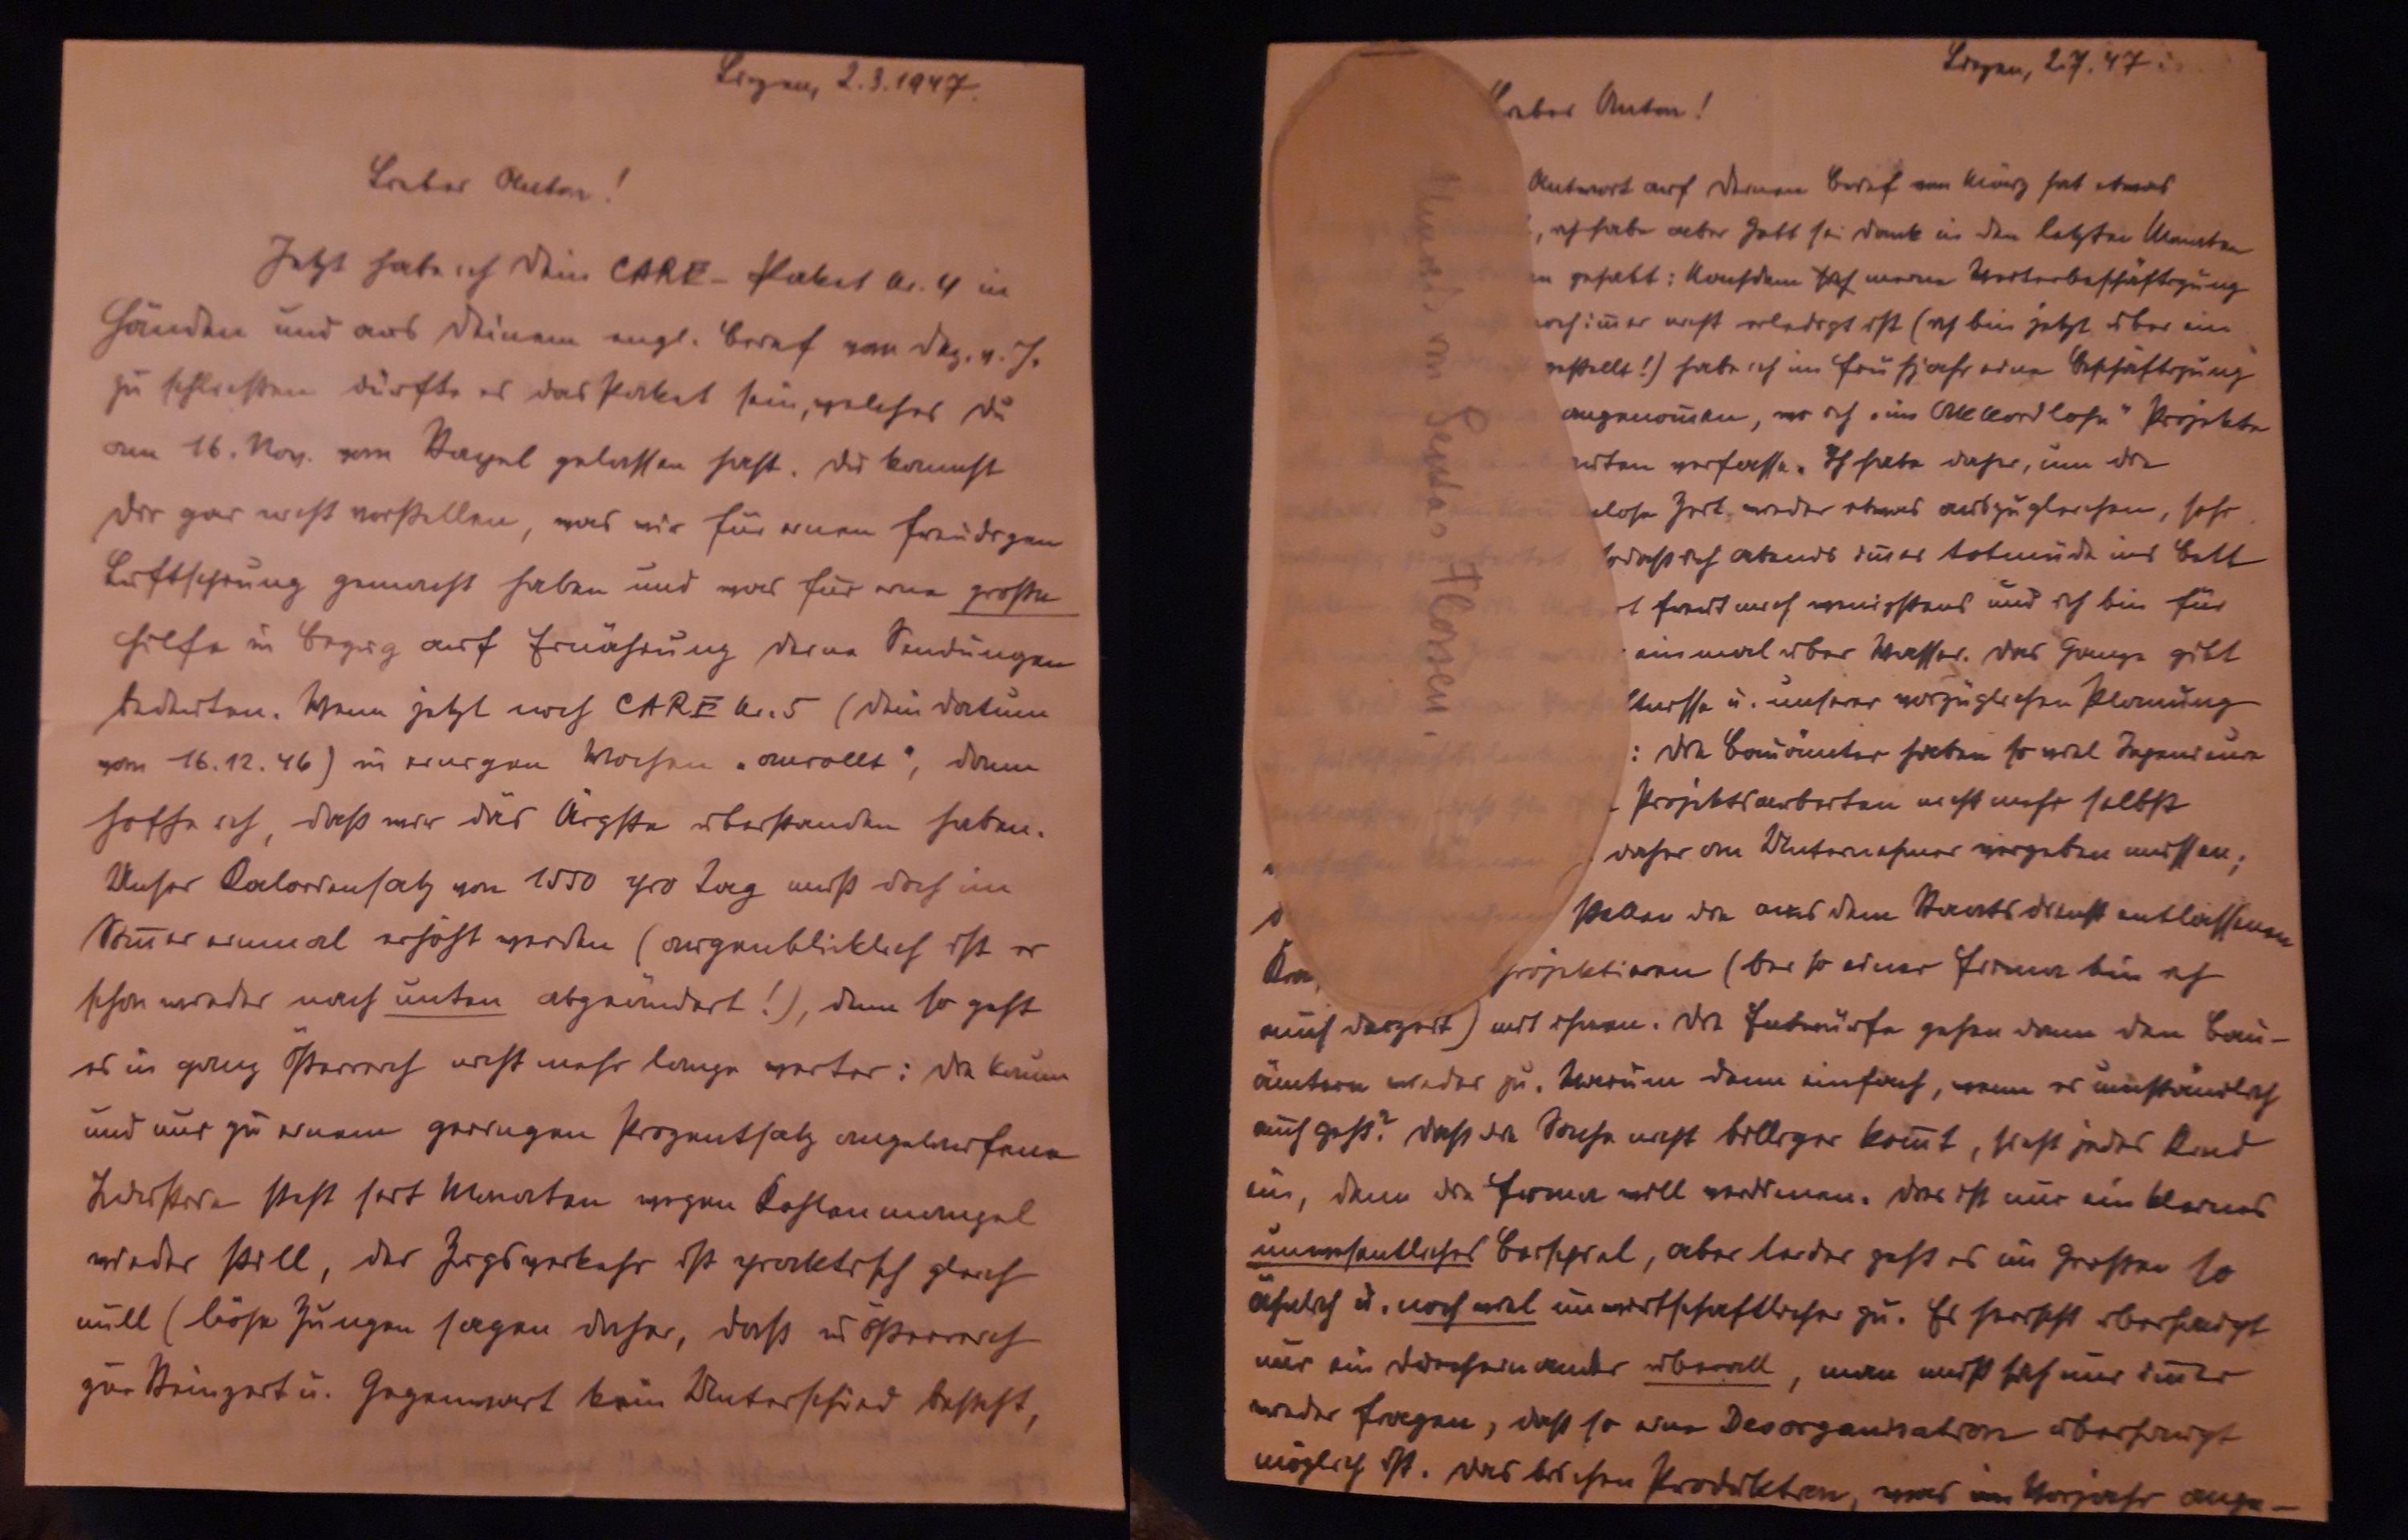 Liezen, 2.3.1947.
Lieber Anton!
Jetzt habe ich Dein CARE-Paket Nr. 4 in
Händen und aus Deinem engl. Brief von Dez. v. J.
zu schließen dürfte es das Paket sein, welches Du
am 16. Nov. vom Stapel gelassen hast. Du kannst
Dir gar nicht vorstellen, was wir für einen freudigen
Luftsprung gemacht haben und was für eine große
Hilfe in Bezug auf Ernährung Deine Sendungen
bedeuten. Wenn jetzt noch CARE Nr. 5 (Dein Datum
vom 16.12.46) in einigen Wochen „anrollt", dann
hoffe ich, daß wir das Ärgste überstanden haben.
Unser Kaloriensatz von 1550 pro Tag muß doch im
Som̄er einmal erhöht werden (augenblicklich ist er
schon wieder nach unten abgeändert!), denn so geht
es in ganz Österreich nicht mehr lange weiter: Die kaum
und nur zu einem geringen Prozentsatz angelaufene
Industrie steht seit Monaten wegen Kohlenmangel
wieder still, der Zugsverkehr ist praktisch gleich
null (böse Zungen sagen daher, daß in Österreich
zur Steinzeit u. Gegenwart kein Unterschied besteht,
Liezen, 2.7.47.
Lieber Anton!
Antwort auf Deinen Brief von März hat etwas
, ich habe aber Gott sei Dank in den letzten Monaten
en gehabt: Nachdem sich meine Weiterbeschäftigung
noch im̄er nicht erledigt ist (ich bin jetzt über ein
gestellt!) habe ich im Frühjahr eine Beschäftigung
angenom̄en, wo ich „im Akkordlohn" Projekte
verfasse. Ich habe daher, um die
lose Zeit wieder etwas auszugleichen, sehr
sodaß ich abends im̄er totmüde ins Bett
t freut mich wenigstens und ich bin für
einmal über Wasser. Das Ganze gibt
ltnisse u. unserer vorzüglichen Planung
: Die Bauämter haben so viel Ingenieure
Projektsarbeiten nicht mehr selbst
daher an Unternehmer vergeben müssen;
stellen die aus dem Staatsdienst entlassenen
projektieren (bei so einer Firma bin ich
auch derzeit) mit ihnen. Die Entwürfe gehen dann den Bau-
ämtern wieder zu. Warum denn einfach, wenn es umständlich
auch geht? Daß die Sache nicht billiger kom̄t, sieht jedes Kind
ein, denn die Firma will verdienen. Das ist nur ein kleines
unwesentliches Beispiel, aber leider geht es im Großen so
ähnlich u. noch viel unwirtschaftlicher zu. Es herrscht überhaupt
nur ein Durcheinander überall, man muß sich nur im̄er
wieder fragen, daß so eine Desorganisation überhaupt
möglich ist. Das bischen Produktion, was im Vorjahr ange-
Umriß von Gerdas Flossen.